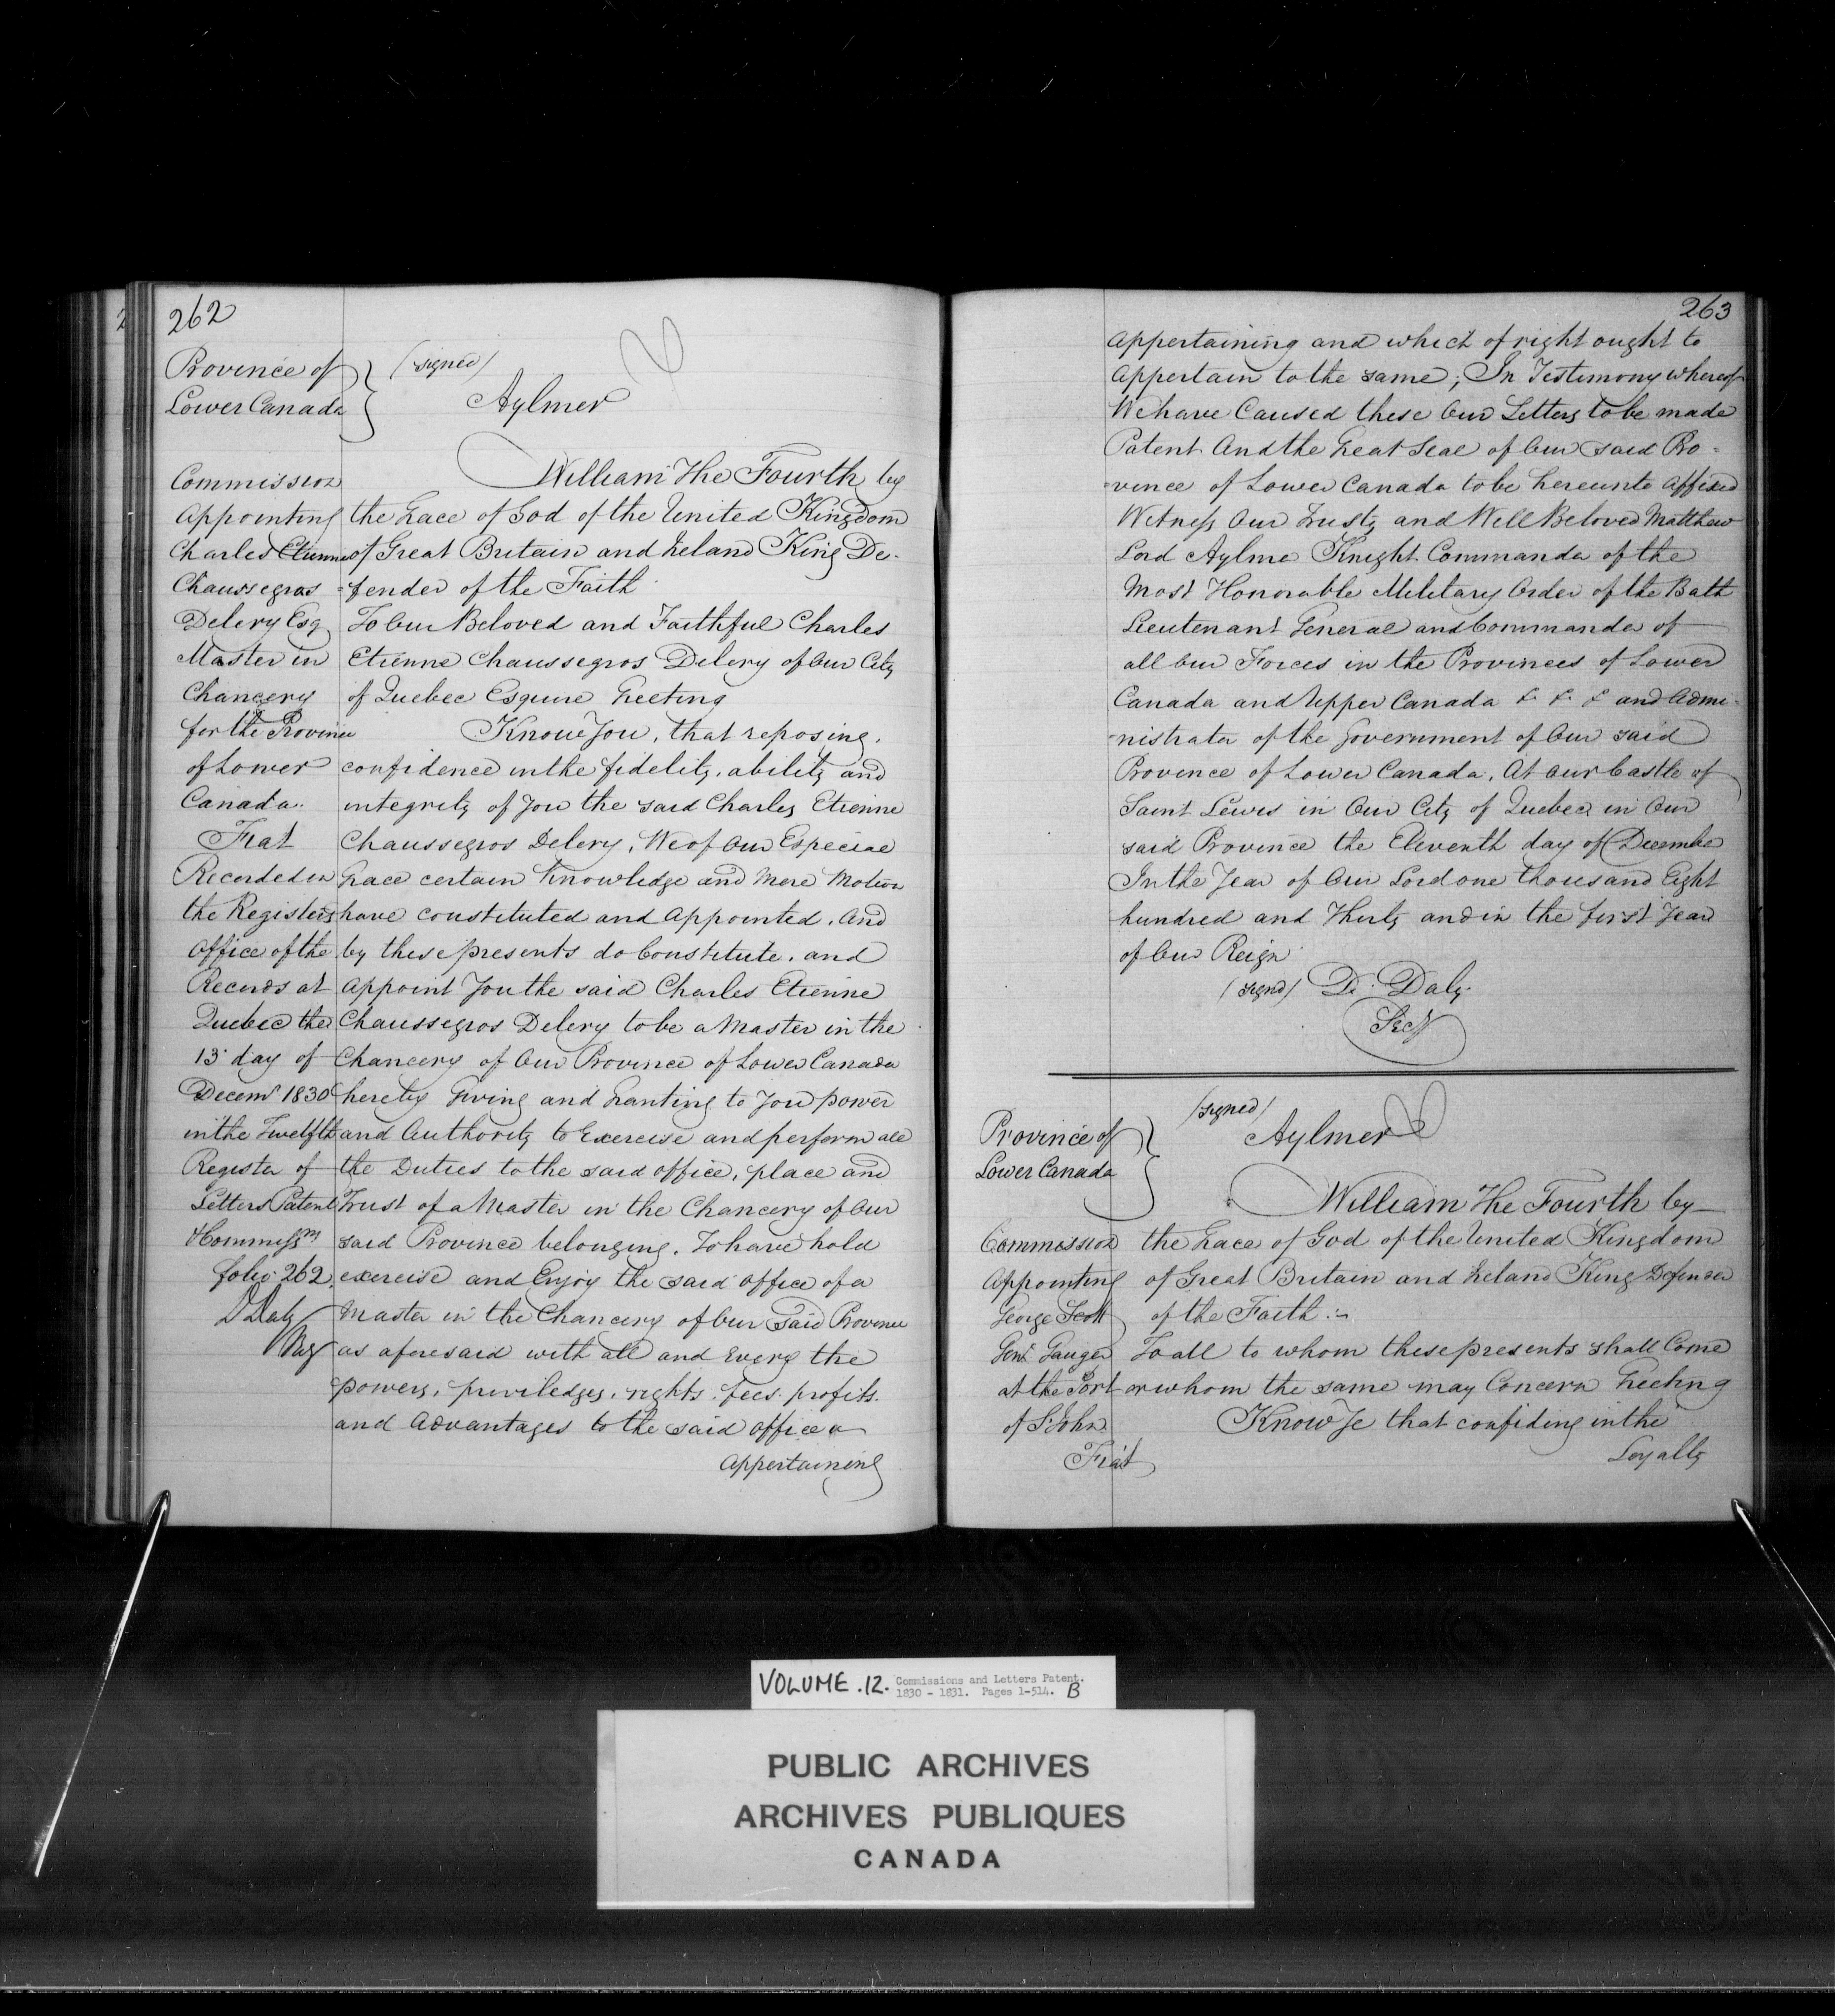 262
Province of
Lower Canada
(signed)
Aylmer
Commission
Appointing
Charles Etienne
Chaussegros
Delery Esq
Master in
Chancery
for the Province
of Lower
Canada.
Fiat
Recorded in
the Registers
Office of the
Records at
Quebec the
13 day of
Decemr 1830
in the Twelfth
Register of
Letters Patent
& Commissns
folio 262.
D Daly
Reg
William The Fourth by
the Grace of God of the United Kingdom
of Great Britain and Ireland King De-
-fender of the Faith
To Our Beloved and Faithful Charles
Etienne Chaussegros Delery of Our City
of Quebec Esquire Greeting
Know You, that reposing,
confidence in the fidelity, ability and
integrity of You the said Charles Etienne
Chaussegros Delery, We of Our Especial
Grace certain Knowledge and Mere Motion
have constituted and Appointed, And
by these presents do Constitute, and
Appoint You the said Charles Etienne
Chaussegros Delery to be a Master in the
Chancery of Our Province of Lower Canada
hereby Giving and Granting to You power
and Authority to Exercise and perform all
the Duties to the said office, place and
Trust of a Master in the Chancery of Our
said Province belonging, To have hold
exercise and Enjoy the said office of a
Master in the Chancery of Our Said Province
as aforesaid with all and Every the
powers, priviledges, rights, fees profits
and Advantages to the said office
Appertaining
263
Appertaining and which of right ought to
Appertain to the same; In Testimony whereof
We have Caused these Our Letters to be made
Patent And the Great Seal of Our said Pro-
-vince of Lower Canada to be hereunto Affixed
Witness Our Trusty and Well Beloved Matthew
Lord Aylmer Knight Commander of the
Most Honorable Military Order of the Bath
Lieutenant General and Commander of
all Our Forces in the Provinces of Lower
Canada and Upper Canada &. &. & and Admi-
-nistrator of the Government of Our said
Province of Lower Canada, At Our Castle of
Saint Lewis in Our City of Quebec in Our
said Province the Eleventh day of December
In the Year of Our Lord one thousand Eight
hundred and Thirty and in the first Year
of Our Reign
(signd) D. Daly
Secy
(signed)
Aylmer
Province of
Lower Canada
Commission
Appointing
George Scott
Gent Gauger
at the Port
of St John
Fiat
William The Fourth by
the Grace of God of the United Kingdom
of Great Britain and Ireland King Defender
of the Faith :~
To all to whom these presents shall Come
or whom the same may Concern Greeting
Know Ye that confiding in the
Loyalty
VOLUME .12. Commissions and Letters Patent.
1830 - 1831. Pages 1-514. B
PUBLIC ARCHIVES
ARCHIVES PUBLIQUES
CANADA